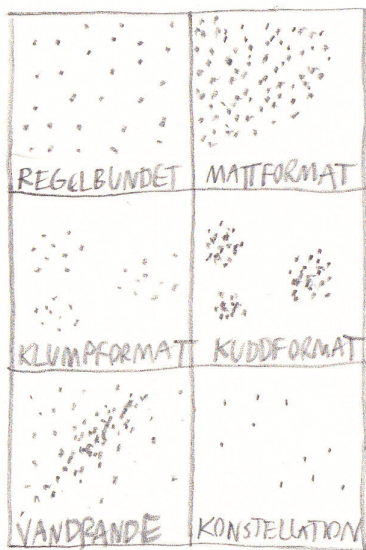 REGELBUNDET
MATTFORMAT
KLUMPFORMATT
KUDDFORMAT
VANDRANDE
KONSTELLATION